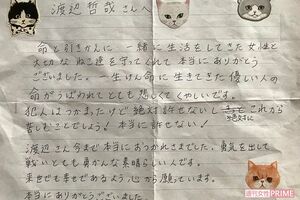 渡辺 哲哉さんへ
命と引きかえに 一緒に生活をしてきた女性と
大切な ねこ達を守ってくれて 本当にありがとう
ございました。一生けん命に生きてきた優しい人の
命がうばわれて とても悲しくて くやしいです。
犯人はつかまったけど 絶対許せない これから
苦しむことでしょう! 本当に許せない!
渡辺さん 今まで 本当に おつかれさまでした。勇気を出して
戦い とても 勇かんな素晴らしい人です。
来世でも幸せであるよう 心から願っています。
本当に ありがとうございました。
週刊女性PRIME